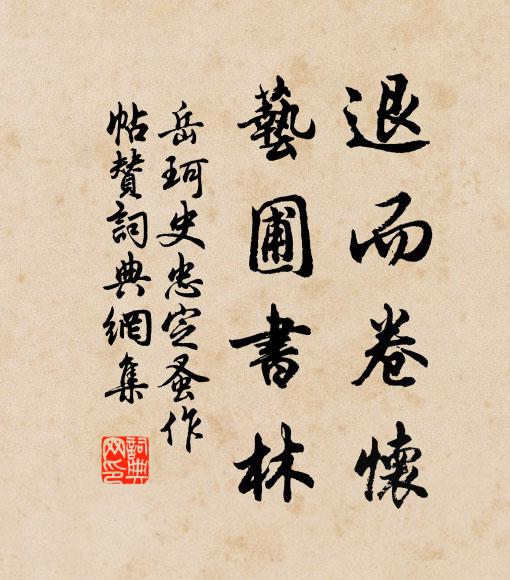 退而卷懷
藝圃書林
岳珂史忠定蚤作
帖贊詞典網集
詞典網印